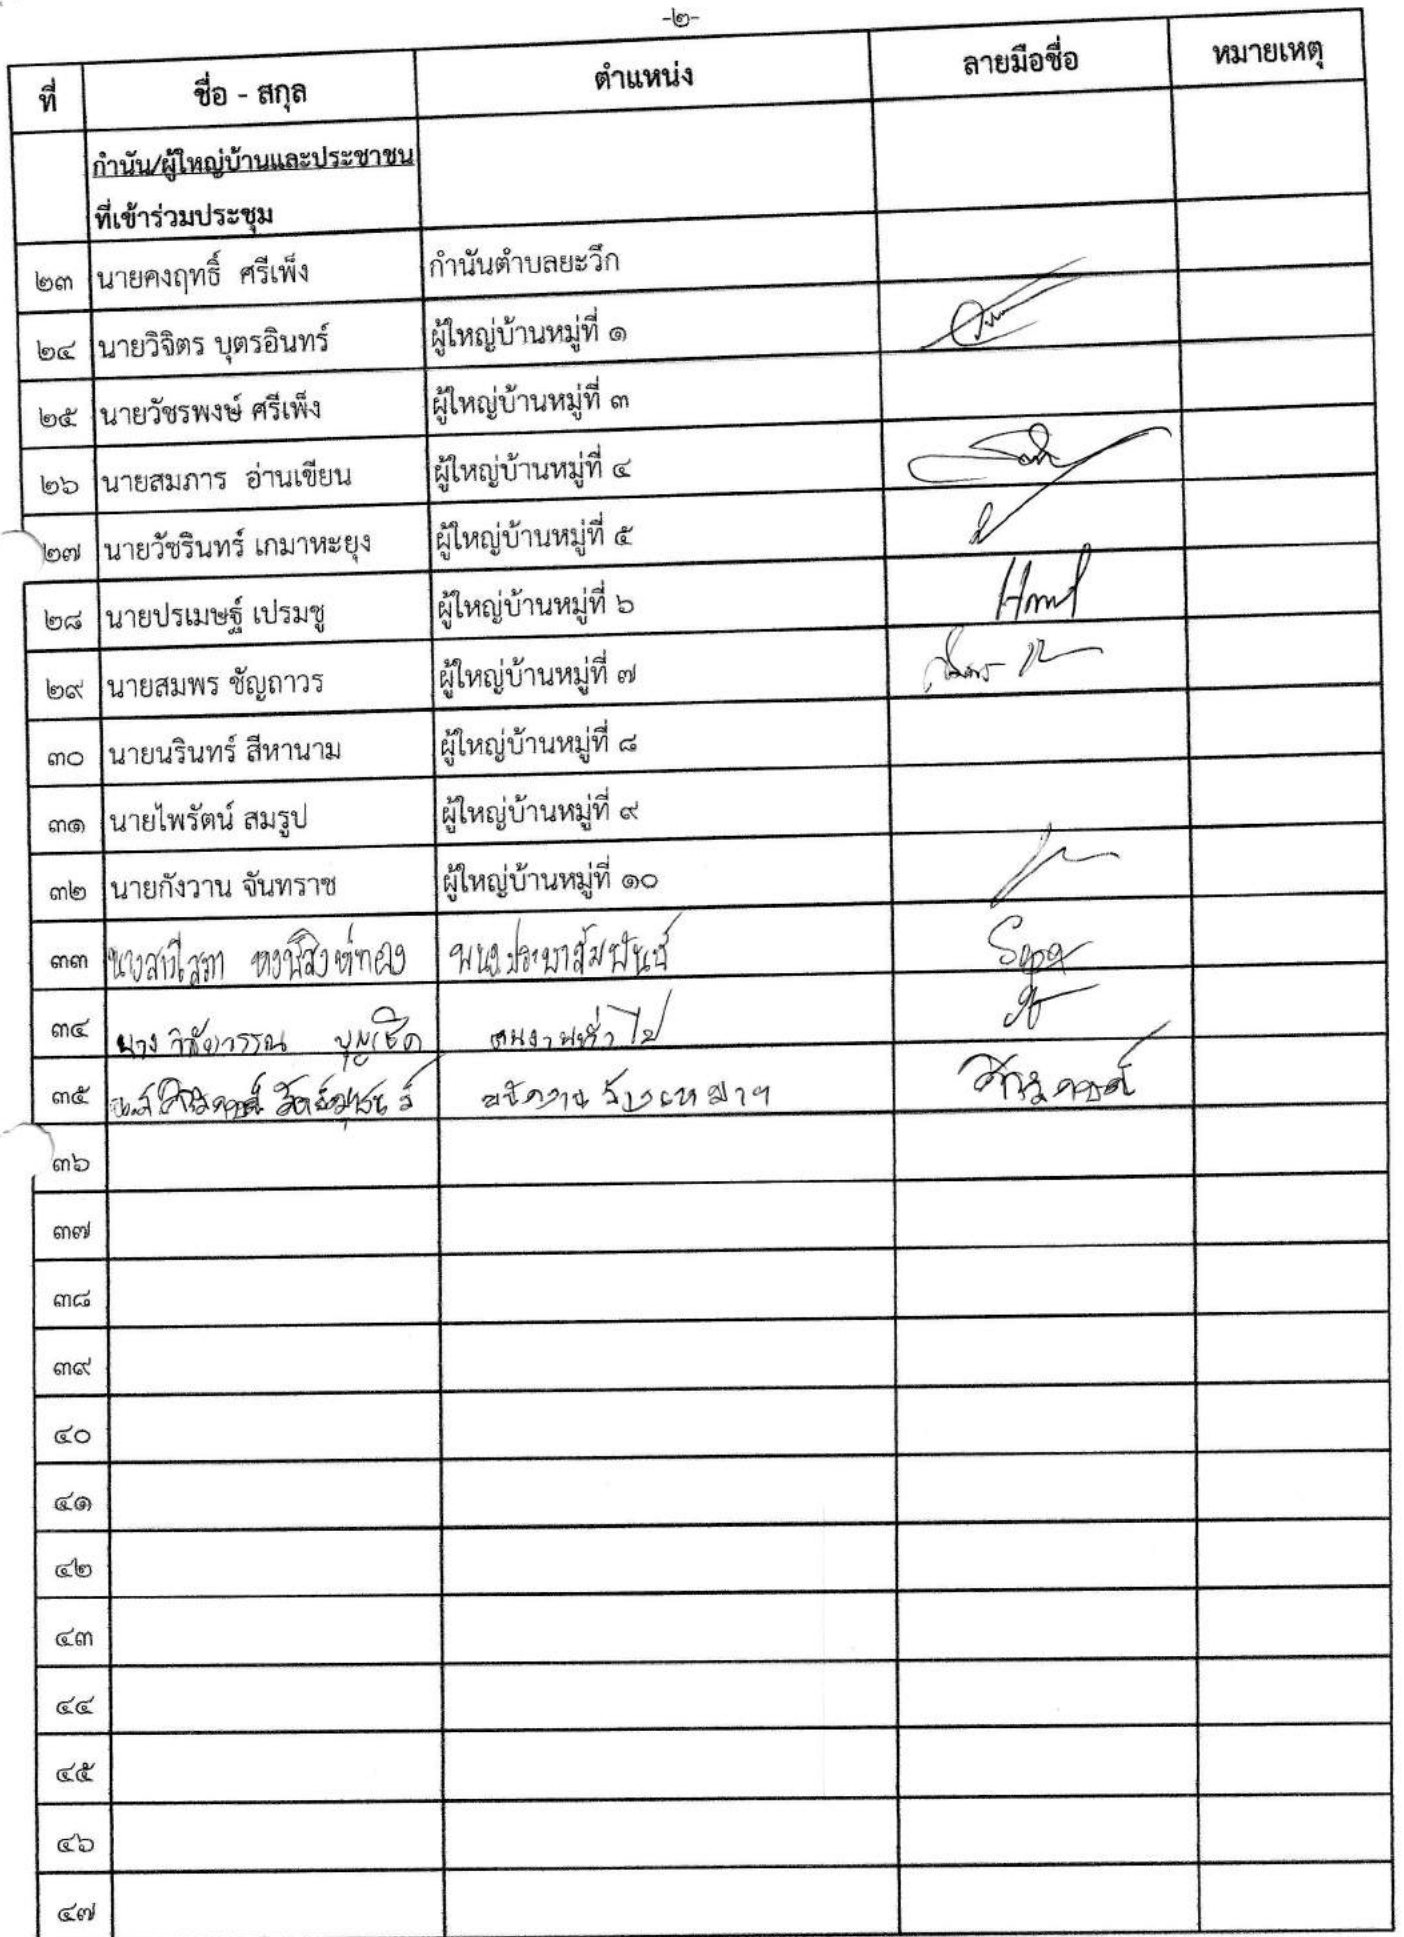 -๒-
ที่ ชื่อ - สกุล ตำแหน่ง ลายมือชื่อ หมายเหตุ
กำนัน/ผู้ใหญ่บ้านและประชาชน
ที่เข้าร่วมประชุม
๒๓ นายคงฤทธิ์ ศรีเพ็ง กำนันตำบลยะวึก
๒๔ นายวิจิตร บุตรอินทร์ ผู้ใหญ่บ้านหมู่ที่ ๑
๒๕ นายวัชรพงษ์ ศรีเพ็ง ผู้ใหญ่บ้านหมู่ที่ ๓
๒๖ นายสมภาร อ่านเขียน ผู้ใหญ่บ้านหมู่ที่ ๔
๒๗ นายวัชรินทร์ เกมาหะยุง ผู้ใหญ่บ้านหมู่ที่ ๕
๒๘ นายปรเมษฐ์ เปรมชู ผู้ใหญ่บ้านหมู่ที่ ๖
๒๙ นายสมพร ชัญถาวร ผู้ใหญ่บ้านหมู่ที่ ๗
๓๐ นายนรินทร์ สีหานาม ผู้ใหญ่บ้านหมู่ที่ ๘
๓๑ นายไพรัตน์ สมรูป ผู้ใหญ่บ้านหมู่ที่ ๙
๓๒ นายกังวาน จันทราช ผู้ใหญ่บ้านหมู่ที่ ๑๐
๓๓ นางสาวโสภา Sopa
๓๔ นาง วิชัยวรรณ บุญเชิด คนงานทั่วไป
๓๕ น.ส.
๓๖
๓๗
๓๘
๓๙
๔๐
๔๑
๔๒
๔๓
๔๔
๔๕
๔๖
๔๗